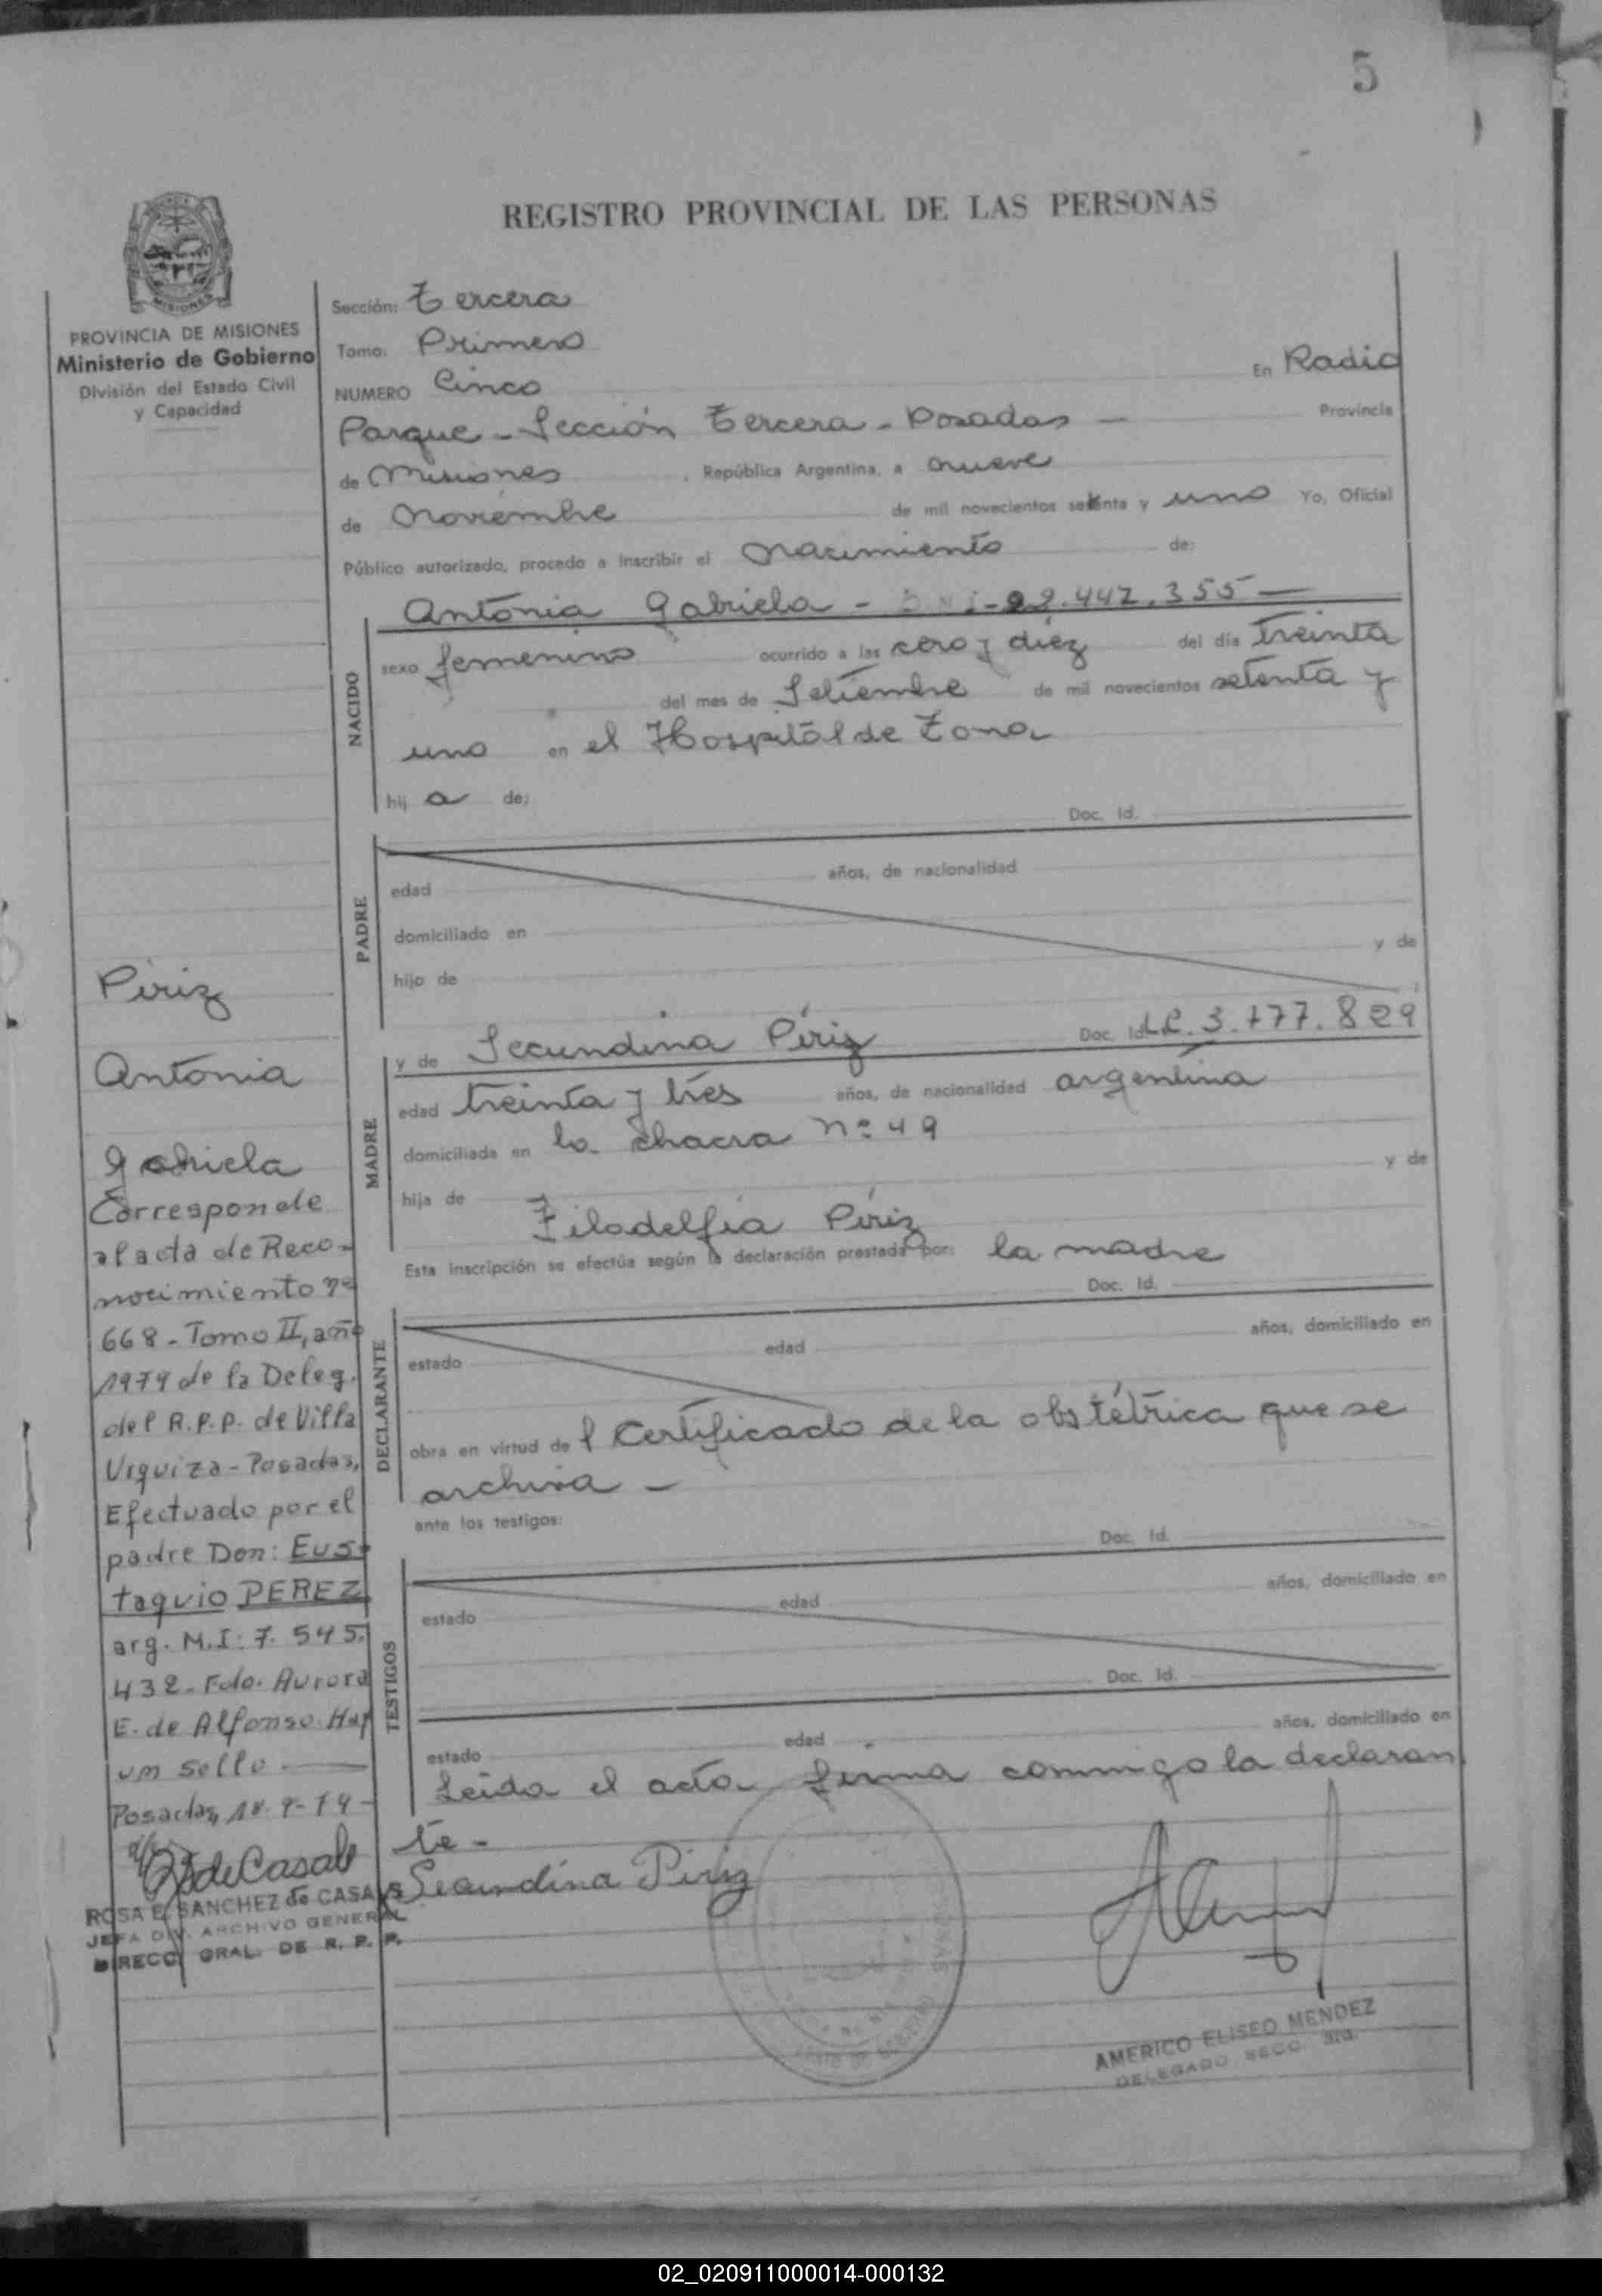 5
REGISTRO PROVINCIAL DE LAS PERSONAS
MISIONES
PROVINCIA DE MISIONES
Ministerio de Gobierno
División del Estado Civil
y Capacidad
Sección: Tercera
Tomo: Primero
NUMERO Cinco En Radio
Parque - Sección Tercera - Posadas - Provincia
de Misiones , República Argentina, a nueve
de noviembre de mil novecientos setenta y uno Yo, Oficial
Público autorizado, procedo a inscribir el nacimiento de:
NACIDO
Antonia Gabriela - 22.442.355 -
sexo femenino ocurrido a las cero y diez del día treinta
del mes de Setiembre de mil novecientos setenta y
uno en el Hospital de Zona
hij a de:
Doc. Id.
PADRE
edad años, de nacionalidad
domiciliado en
y de
hijo de
MADRE
y de Secundina Píriz Doc. Id. L.C. 3.177.829
edad treinta y tres años, de nacionalidad argentina
domiciliada en la chacra nº 49
hija de y de
Filadelfia Píriz
Esta inscripción se efectúa según la declaración prestada por: la madre
Doc. Id.
DECLARANTE
estado edad años, domiciliado en
obra en virtud de l Certificado de la obstétrica que se
archiva -
ante los testigos:
Doc. Id.
TESTIGOS
estado edad años, domiciliado en
Doc. Id.
estado edad años, domiciliado en
Leída el acta firma conmigo la declaran
te -
Secundina Piriz
AMERICO ELISEO MENDEZ
DELEGADO SECC. 3ra.
Píriz
Antonia
Gabriela
Corresponde
al acta de Reco-
nocimiento nº
668 - Tomo II, año
1979 de la Deleg.
del R.P.P. de Villa
Urquiza - Posadas,
Efectuado por el
padre Don: Eus-
taquio PEREZ
arg. M.I: 7.545.
432 - Fdo. Aurora
E. de Alfonso. Hay
un sello.
Posadas, 18-9-79-
de Casals
ROSA E. SANCHEZ de CASALS
JEFA DIV. ARCHIVO GENERAL
DIRECC. GRAL. DE R. P. P.
02_020911000014-000132